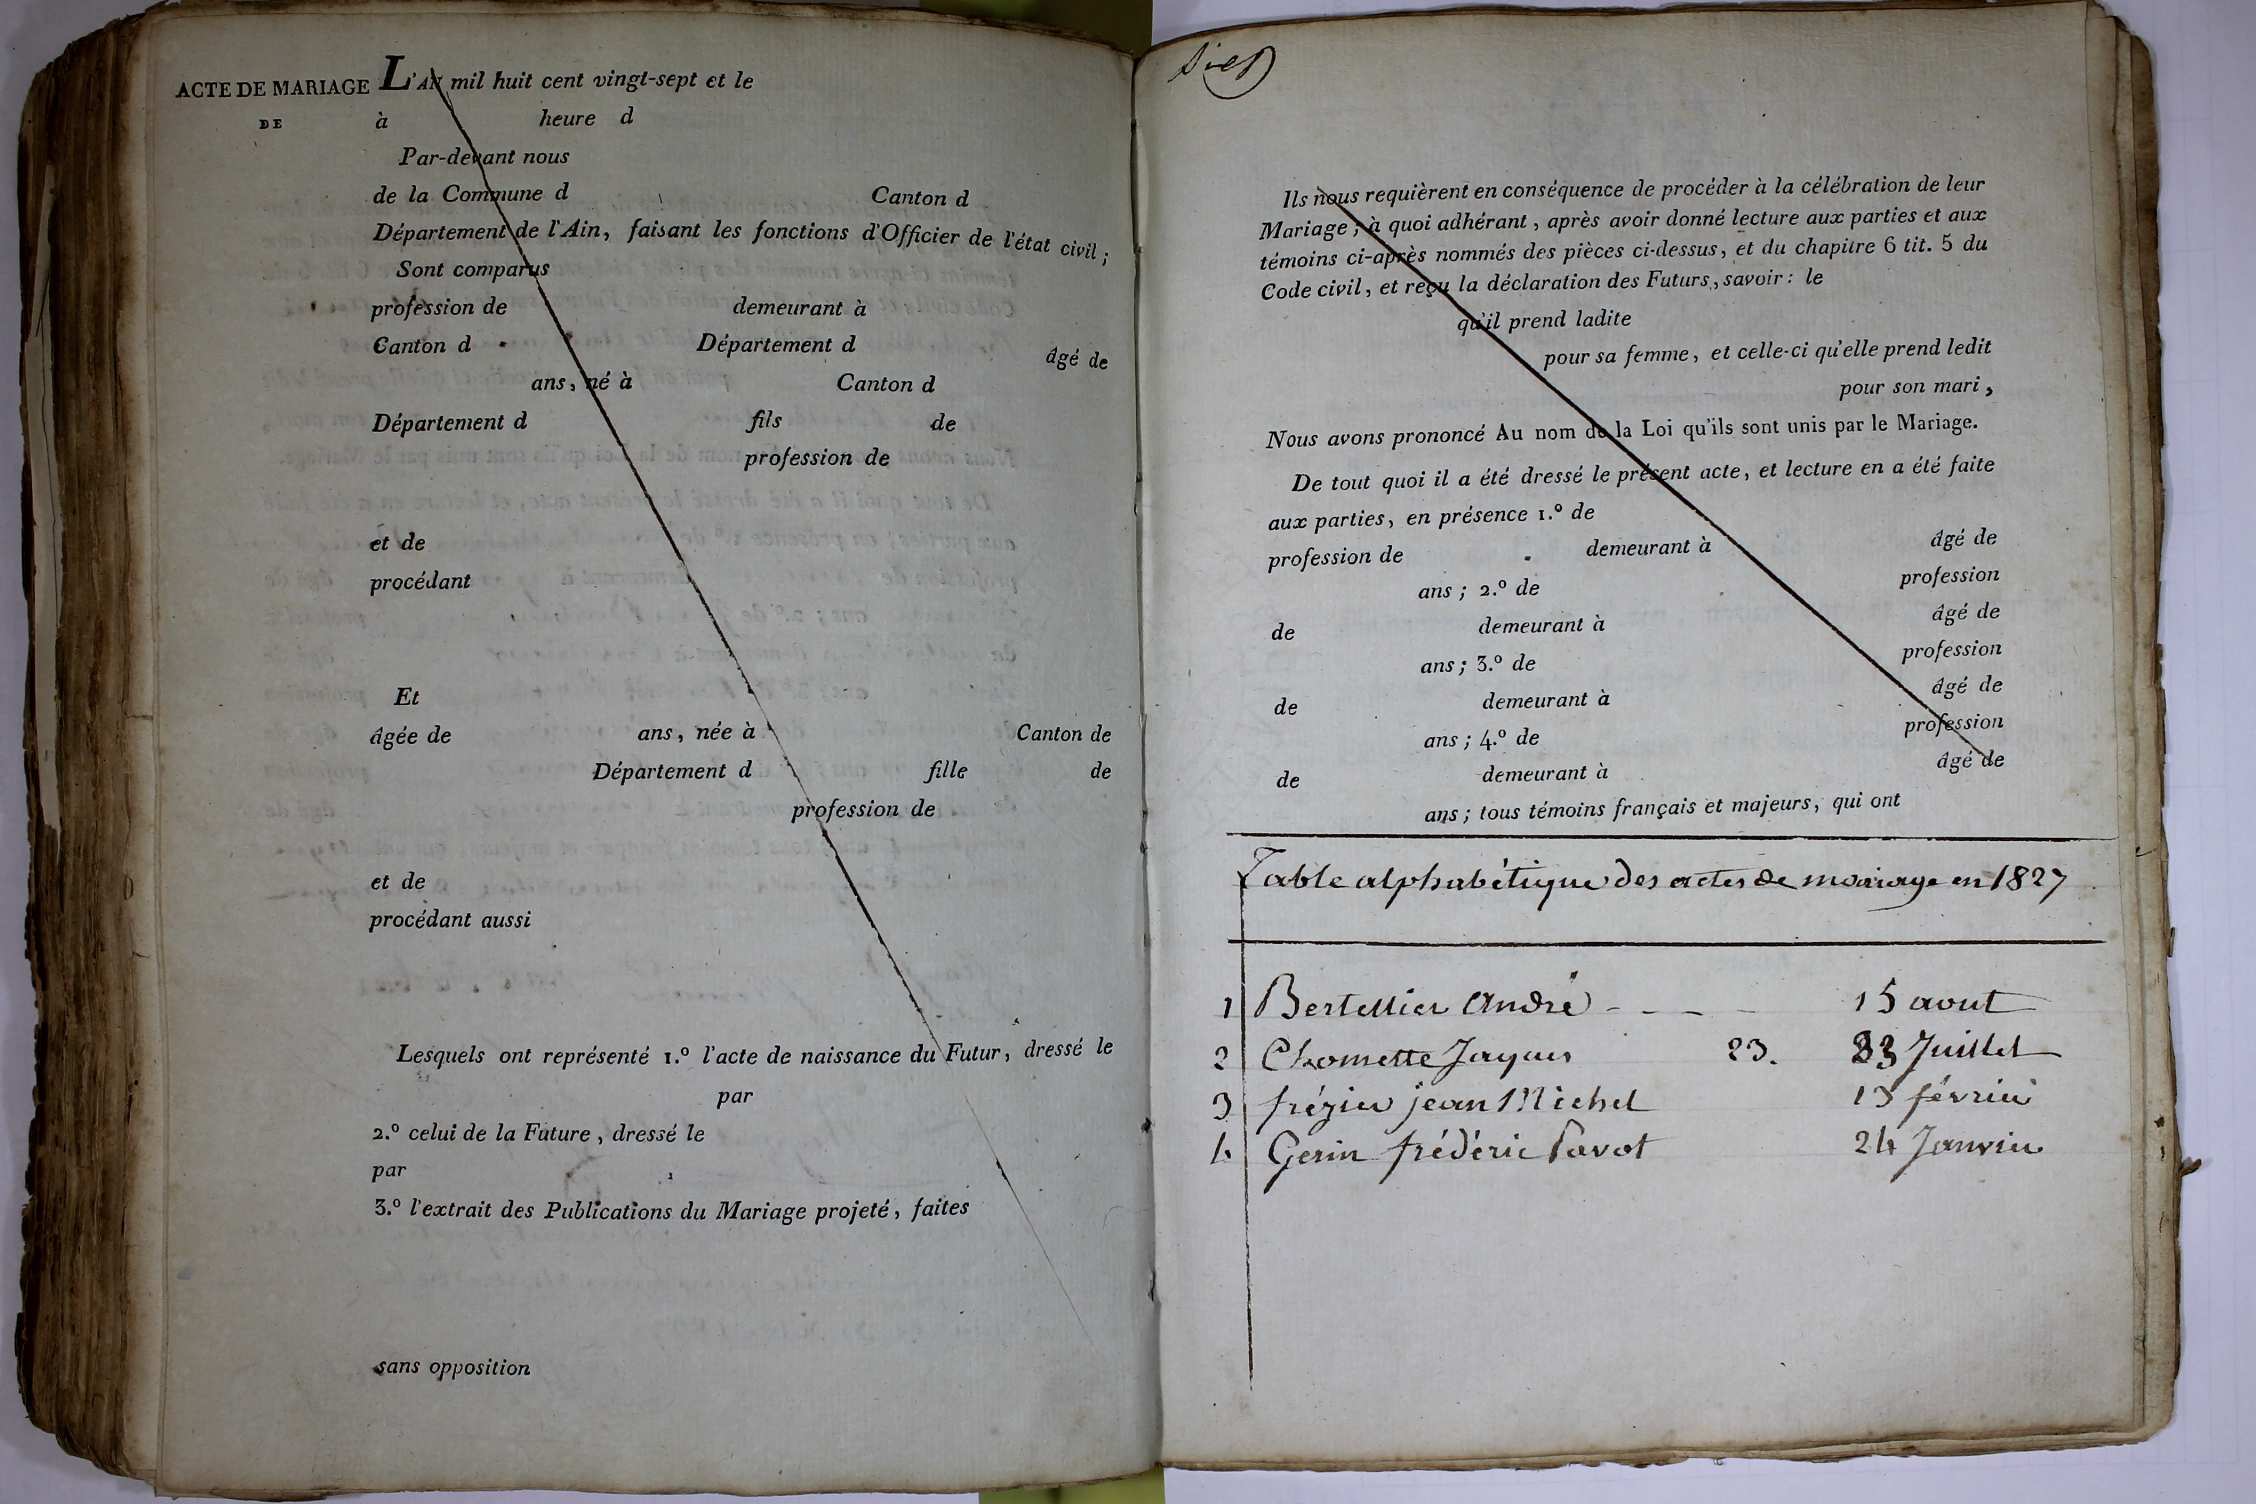 ACTE DE MARIAGE L'AN mil huit cent vingt-sept et le
DE à heure d
Par-devant nous
de la Commune d Canton d
Département de l'Ain, faisant les fonctions d'Officier de l'état civil ;
Sont comparus
profession de demeurant à
Canton d Département d âgé de
ans, né à Canton d
Département d fils de
profession de
et de
procédant
Et
âgée de ans, née à Canton de
Département d fille de
profession de
et de
procédant aussi
Lesquels ont représenté 1.º l'acte de naissance du Futur, dressé le
par
2.º celui de la Future, dressé le
par
3.º l'extrait des Publications du Mariage projeté, faites
sans opposition
Ils nous requièrent en conséquence de procéder à la célébration de leur
Mariage ; à quoi adhérant, après avoir donné lecture aux parties et aux
témoins ci-après nommés des pièces ci-dessus, et du chapitre 6 tit. 5 du
Code civil, et reçu la déclaration des Futurs, savoir : le
qu'il prend ladite
pour sa femme, et celle-ci qu'elle prend ledit
pour son mari,
Nous avons prononcé Au nom de la Loi qu'ils sont unis par le Mariage.
De tout quoi il a été dressé le présent acte, et lecture en a été faite
aux parties, en présence 1.º de
profession de demeurant à âgé de
ans ; 2.º de profession
de demeurant à âgé de
ans ; 3.º de profession
de demeurant à âgé de
ans ; 4.º de profession
de demeurant à âgé de
ans ; tous témoins français et majeurs, qui ont
Table alphabétique des actes de mariage en 1827
1 Bertellier André - - - - 15 aout
2 Chomette Jaques 23. 23 Juillet
3 frégier jean Michel 13 février
4 Gerin frédéric Pavot 24 Janvier